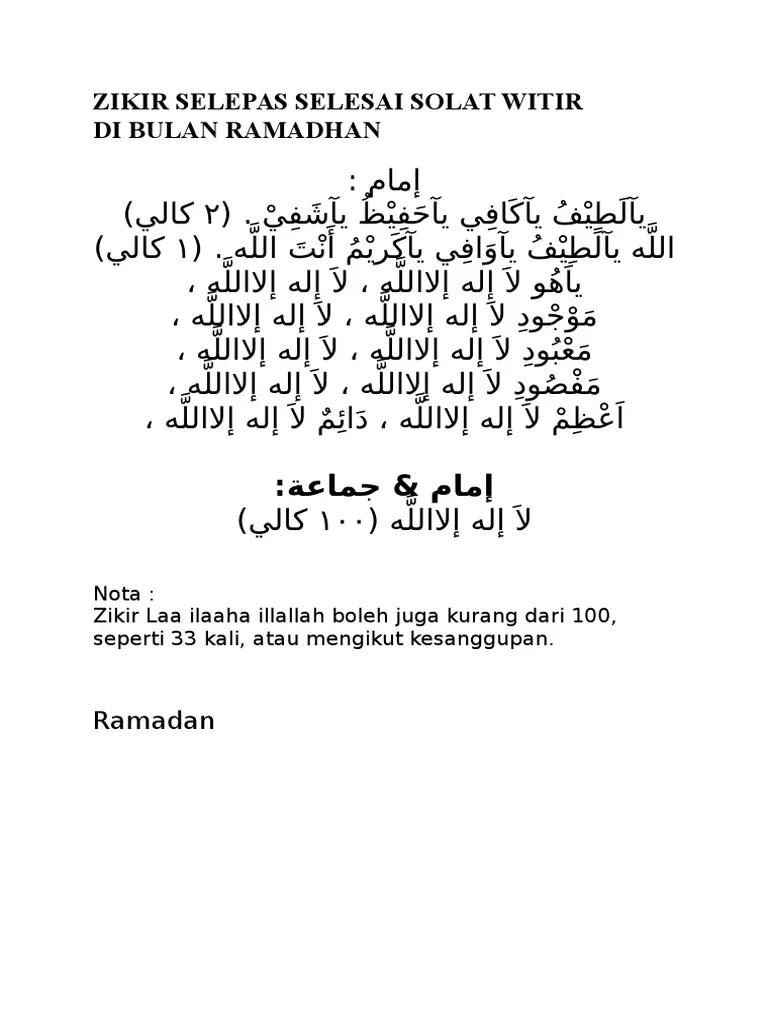 ZIKIR SELEPAS SELESAI SOLAT WITIR
DI BULAN RAMADHAN
إمام :
يآلَطِيْفُ يآكَافِي يآحَفِيْظُ يآشَفِيْ . (٢ كالي)
اللَّه يآلَطِيْفُ يآوَافِي يآكَرِيْمُ أَنْتَ اللَّه . (١ كالي)
ياَهُو لاَ إله إلااللَّه ، لاَ إله إلااللَّه ،
مَوْجُودِ لاَ إله إلااللَّه ، لاَ إله إلااللَّه ،
مَعْبُودِ لاَ إله إلااللَّه ، لاَ إله إلااللَّه ،
مَقْصُودِ لاَ إله إلااللَّه ، لاَ إله إلااللَّه ،
اَعْظِمْ لاَ إله إلااللَّه ، دَائِمٌ لاَ إله إلااللَّه ،
إمام & جماعة:
لاَ إله إلااللَّه (١٠٠ كالي)
Nota :
Zikir Laa ilaaha illallah boleh juga kurang dari 100,
seperti 33 kali, atau mengikut kesanggupan.
Ramadan